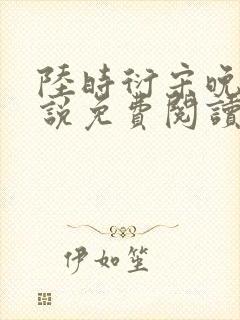 陸時衍宋晚
說免費閱讀
伊如笙